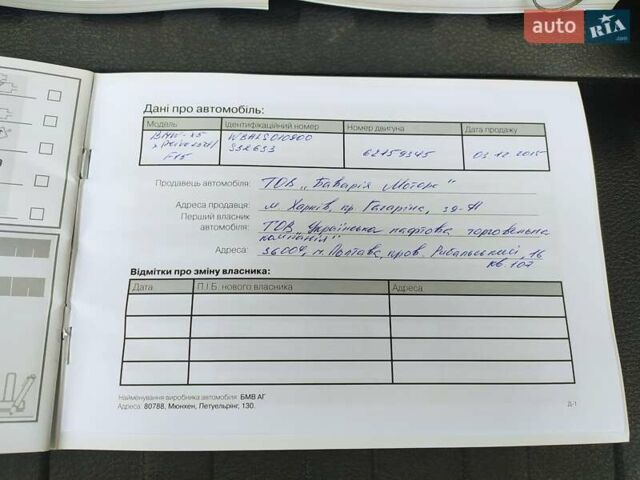 auto RIA .com
Дані про автомобіль:
Модель Ідентифікаційний номер Номер двигуна Дата продажу
BMW-X5
F15 62459345 03.12.2015
Продавець автомобіля: ТОВ „Баварія Моторс"
Адреса продавця: м. Харків, пр. Гагаріна, 39-А
Перший власник
автомобіля: ТОВ „Українська нафтова торговельна
компанія"
Адреса: 36009, м. Полтава, пров. Рибальський, 16
кв. 107
Відмітки про зміну власника:
Дата П.І.Б. нового власника Адреса
Найменування виробника автомобіля: БМВ АГ
Адреса: 80788, Мюнхен, Петуельрінг, 130.
Д-1